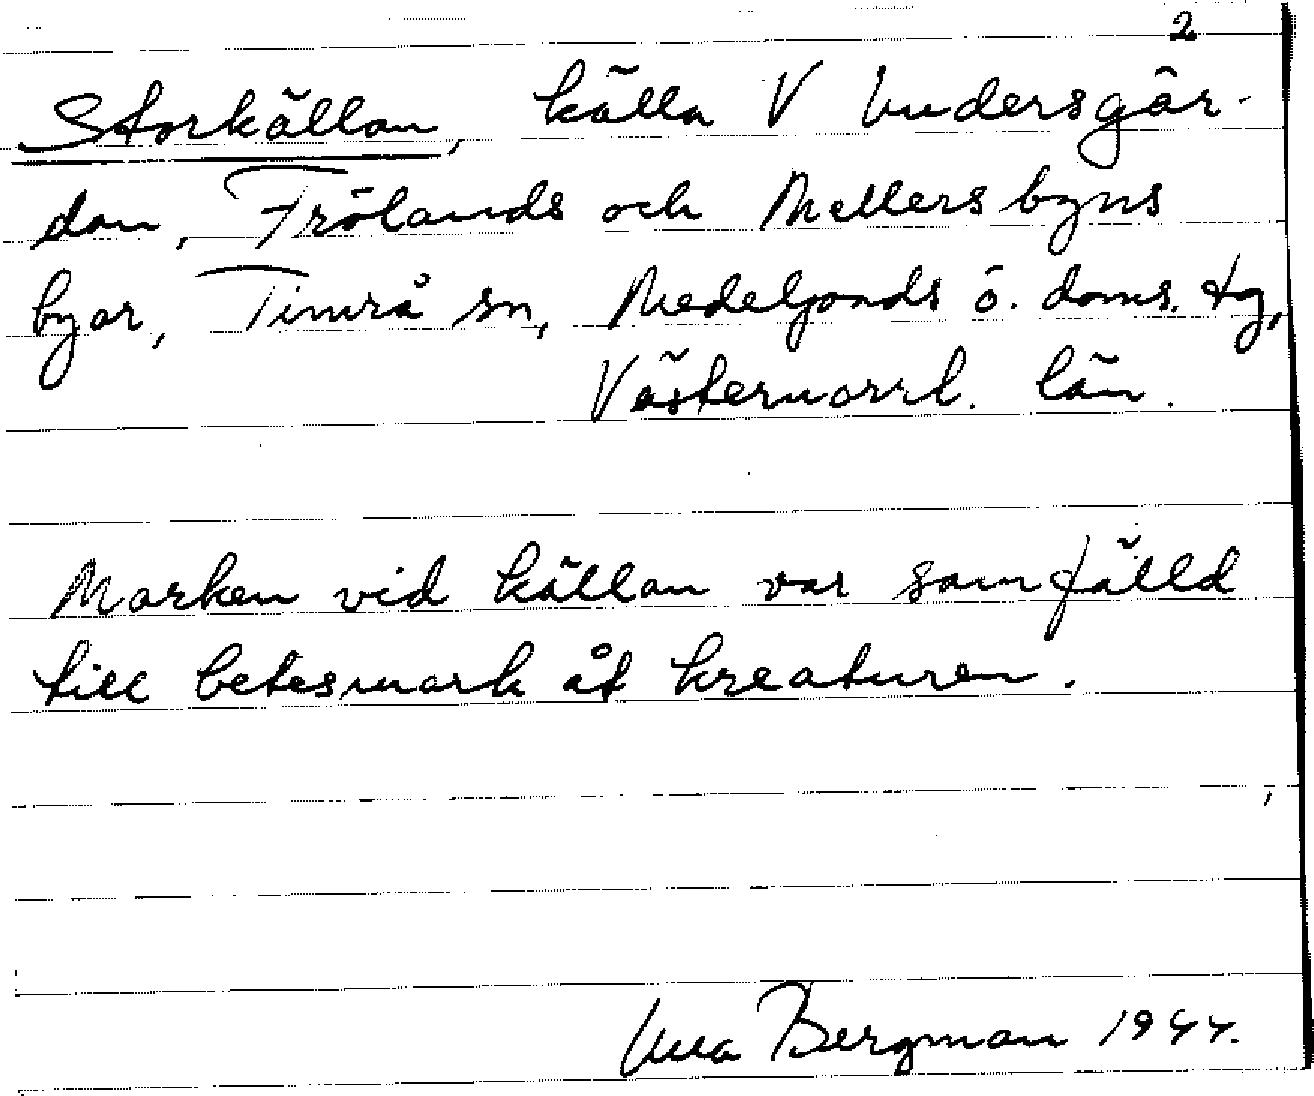 2
Storkällan, källa V Undersgår-
dan, Frölands och Mellersbyns
byar, Timrå sn, Medelpads ö. doms. tg,
Västernorrl. län.
Marken vid källan var samfälld
till betesmark åt kreaturen.
Bergman 1944.